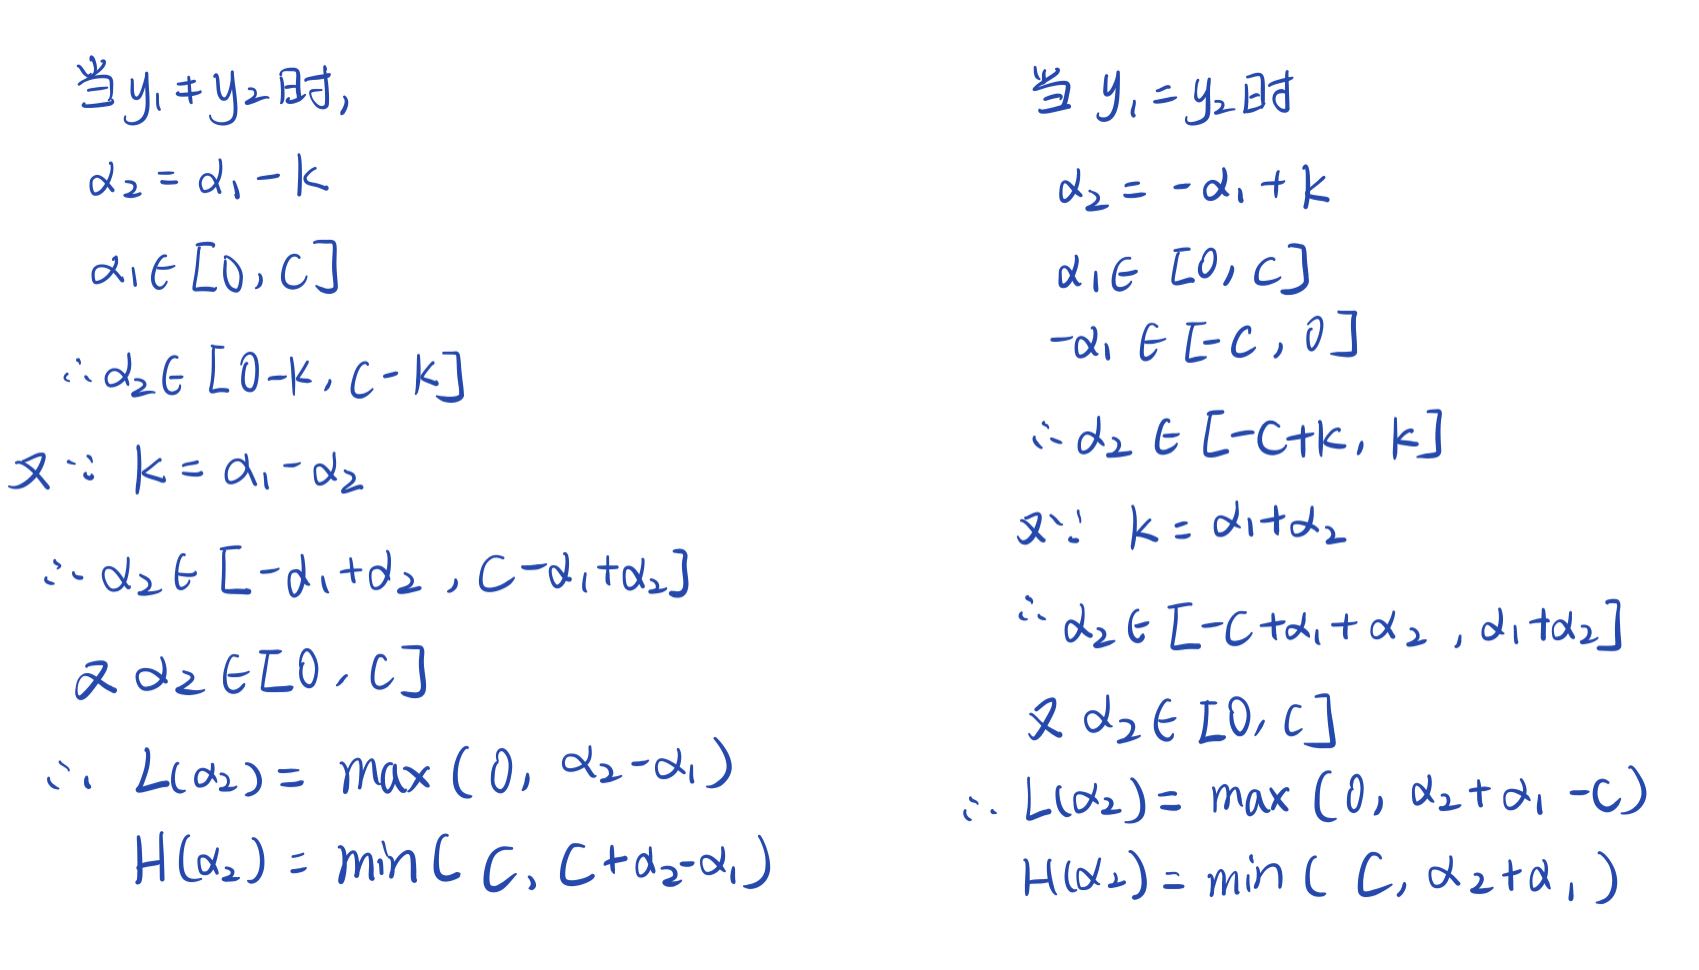 当y₁≠y₂时,
α₂ = α₁ - k
α₁∈[0, C]
∴α₂∈[0-k, C-k]
又∵ k = α₁ - α₂
∴α₂∈[-α₁+α₂, C-α₁+α₂]
又α₂∈[0, C]
∴ L(α₂) = max(0, α₂-α₁)
H(α₂) = min(C, C+α₂-α₁)
当 y₁ = y₂时
α₂ = -α₁ + k
α₁∈ [0, C]
-α₁ ∈ [-C, 0]
∴α₂ ∈ [-C+k, k]
又∵ k = α₁+α₂
∴α₂∈[-C+α₁+α₂, α₁+α₂]
又 α₂∈[0, C]
∴ L(α₂) = max(0, α₂+α₁-C)
H(α₂) = min(C, α₂+α₁)